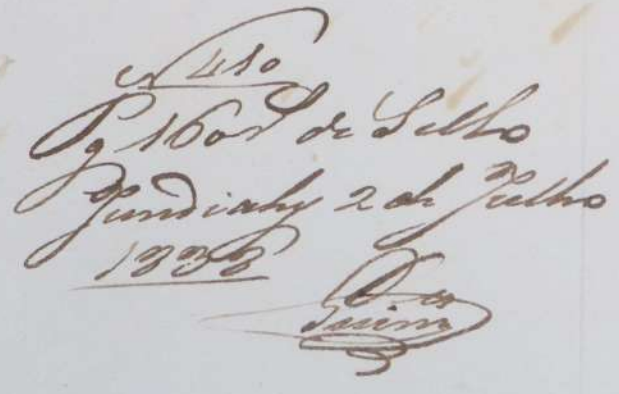 N 410
Pg 160 r de Sello
Jundiahy 2 de Julho
1838